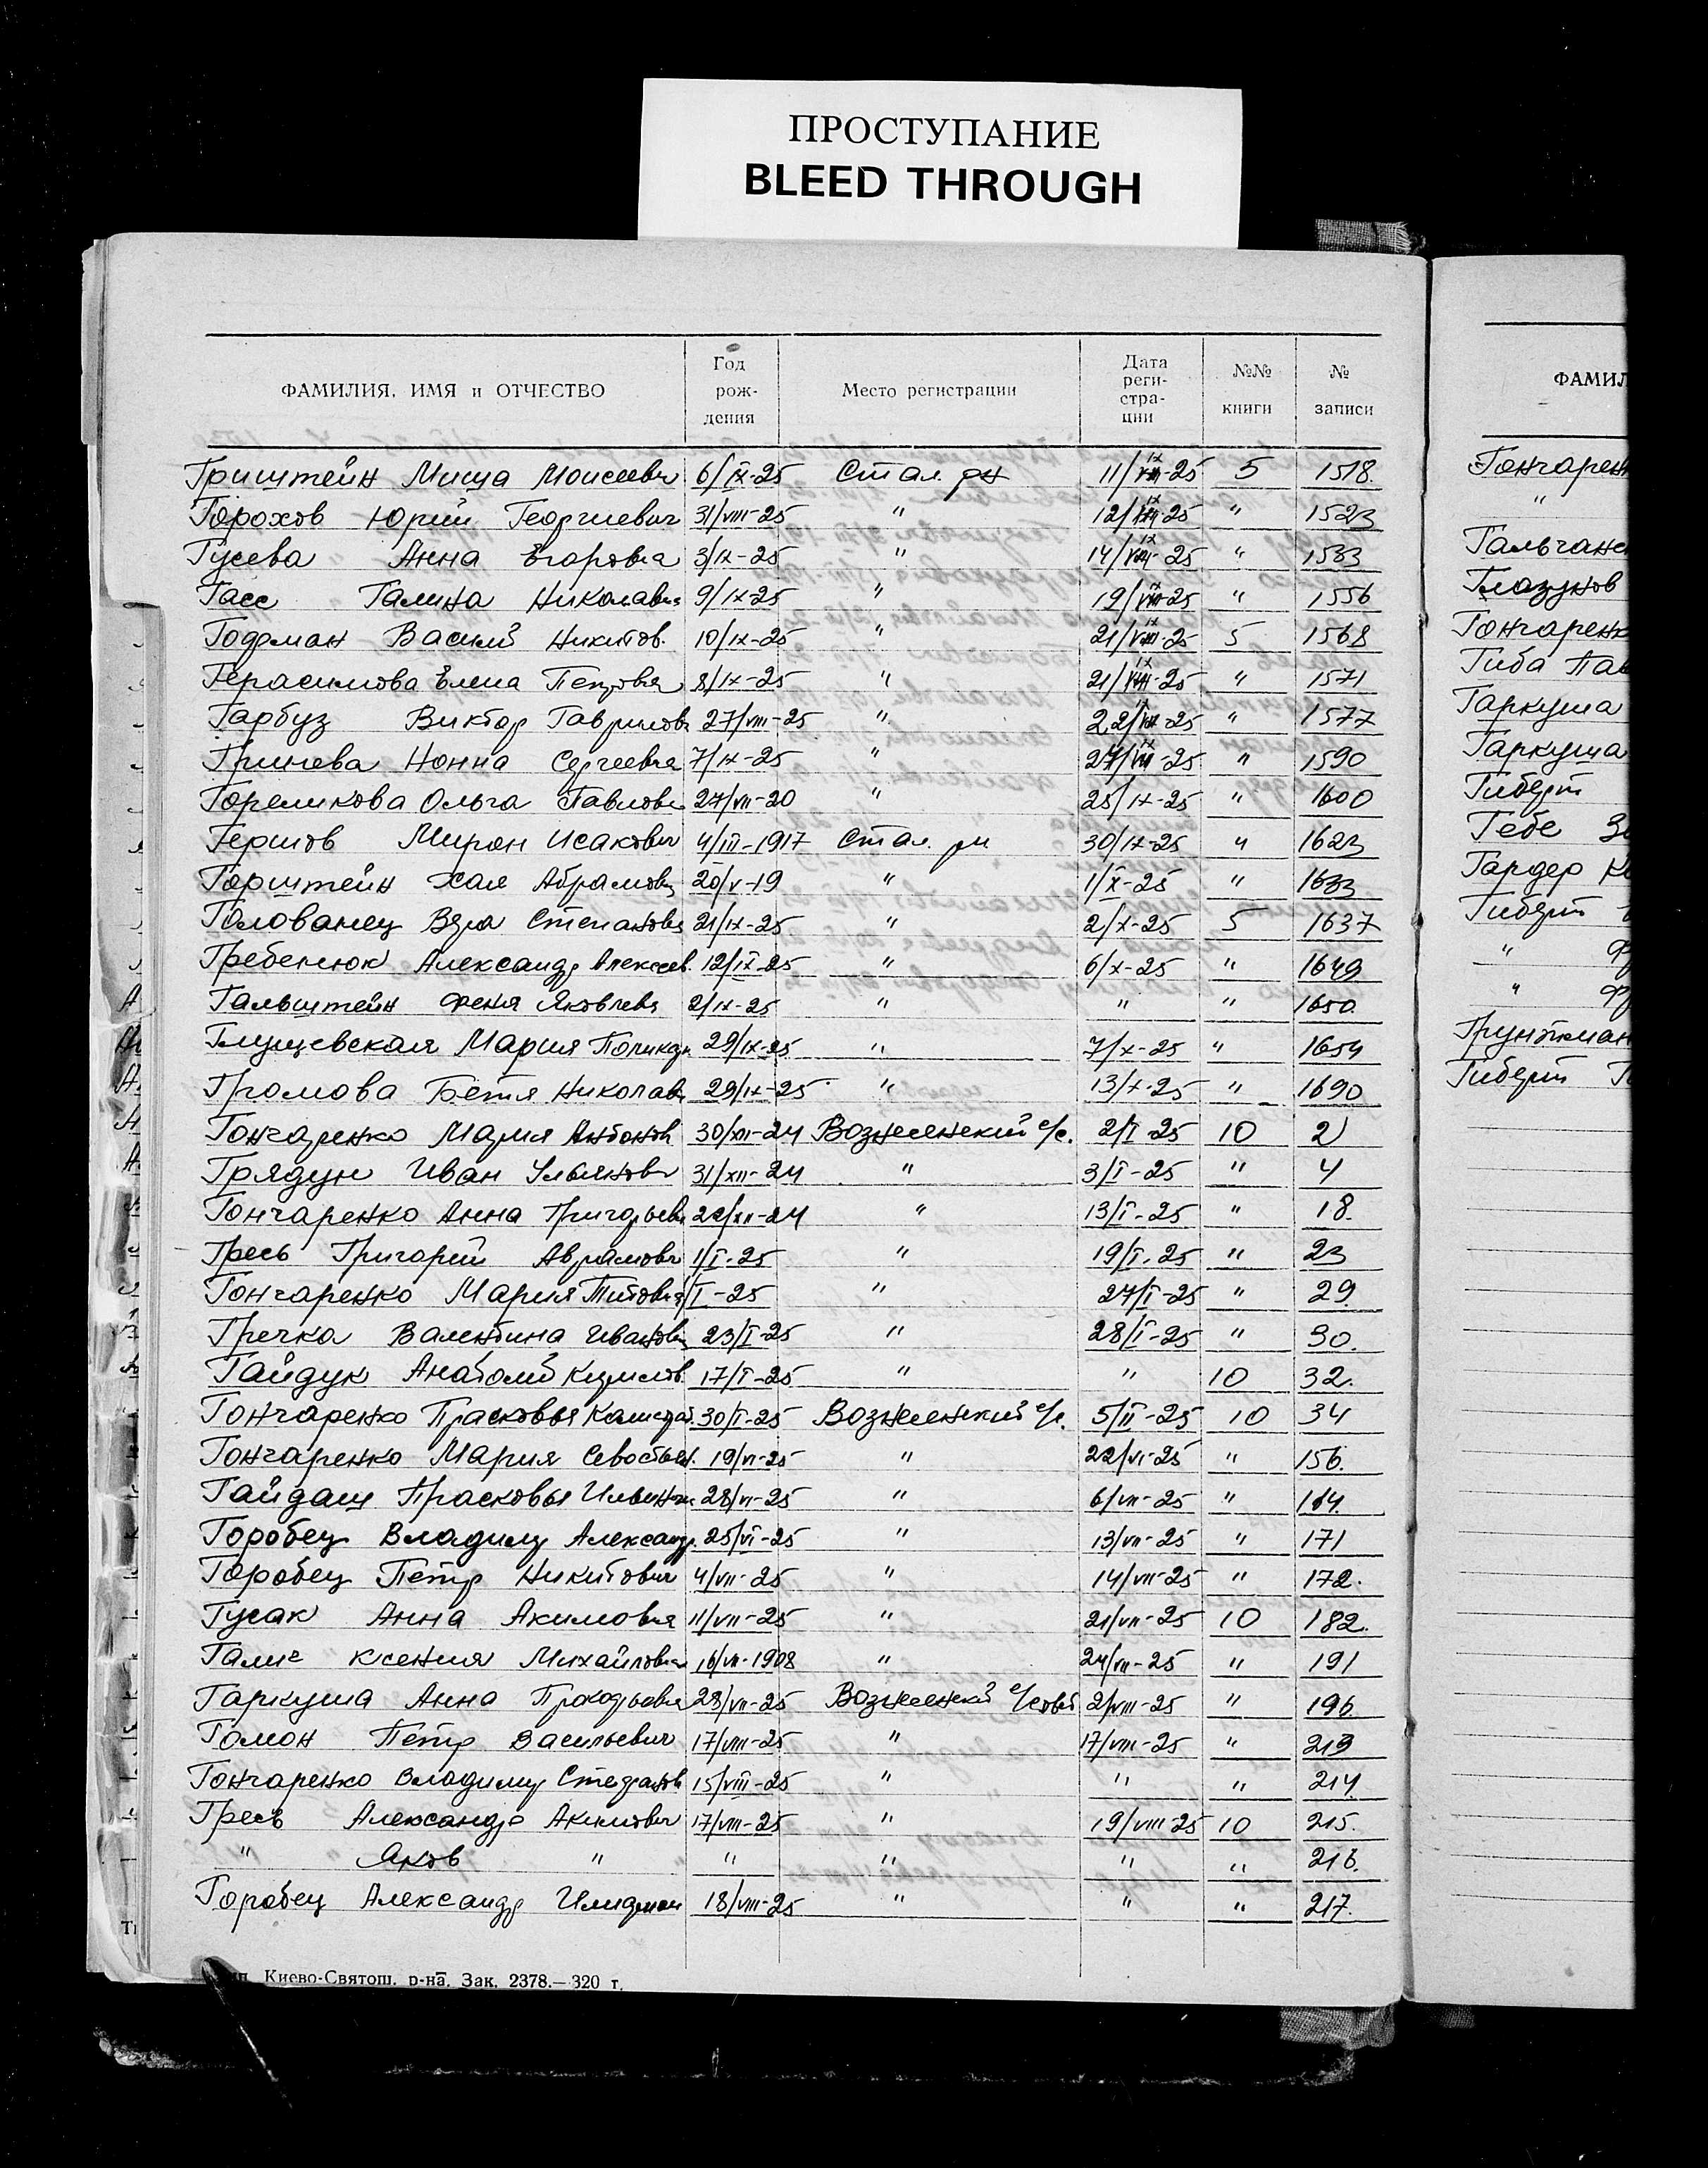 ПРОСТУПАНИЕ
BLEED THROUGH
ФАМИЛИЯ, ИМЯ и ОТЧЕСТВО Год рождения Место регистрации Дата регистрации №№ книги № записи
Гриштейн Миша Моисеевич 6/IX-25 Стал. рн 11/IX-25 5 1518.
Горохов Юрий Георгиевич 31/VIII-25 " 12/IX-25 " 1523
Гусева Анна Егоровна 3/IX-25 " 14/IX-25 " 1533
Гасс Галина Николавна 9/IX-25 " 19/IX-25 " 1556
Годэман Василий Никитов. 10/IX-25 " 21/IX-25 5 1568
Герасимова Елена Петровна 8/IX-25 " 21/IX-25 " 1571
Гарбуз Виктор Гаврилов 27/VIII-25 " 22/IX-25 " 1577
Гринева Нонна Сергеевна 7/IX-25 " 27/IX-25 " 1590
Гореликова Ольга Павловн 27/VII-20 " 25/IX-25 " 1600
Гершов Мирон Исакович 4/III-1917 Стал. рн 30/IX-25 " 1623
Горштейн Хая Абрамовн 20/V-19 " 1/X-25 " 1633
Голованец Вера Степановна 21/IX-25 " 2/X-25 5 1637
Гребенюк Александр Алексеев. 12/IX-25 " 6/X-25 " 1649
Гальштейн Феня Яковлевн 2/IX-25 " " " 1650.
Глущевская Мария Поликар. 29/IX-25 " 7/X-25 " 1654
Громова Бетя Николавн 29/IX-25 " 13/X-25 " 1690
Гончаренко Мария Антонов 30/XII-24 Вознесенский с/с. 2/I-25 10 2
Грядун Иван Ульянович 31/XII-24 " 3/I-25 " 4
Гончаренко Анна Григорьевн 29/XII-24 " 13/I-25 " 18.
Гресь Григорий Аврамович 1/I-25 " 19/I-25 " 23
Гончаренко Мария Титовна /I-25 " 27/I-25 " 29.
Гречка Валентина Ивановн 23/I-25 " 28/I-25 " 30.
Гайдук Анатолий Кирилов. 17/I-25 " " 10 32.
Гончаренко Прасковья 30/I-25 Вознесенский с/с. 5/II-25 10 34
Гончаренко Мария Севостьян. 19/VI-25 " 22/VI-25 " 156.
Гайдаш Прасковья Ильинична 28/VI-25 " 6/VII-25 " 164.
Горобец Владимир Александр. 25/VI-25 " 13/VII-25 " 171
Горобец Петр Никитович 4/VII-25 " 14/VII-25 " 172.
Гусак Анна Акимовна 11/VII-25 " 21/VII-25 10 182.
Галич Ксения Михайловна 16/VII-1908 " 24/VII-25 " 191
Гаркуша Анна Прокофьевна 28/VII-25 Вознесенский с/совет 2/VIII-25 " 196.
Гомон Петр Васильевич 17/VIII-25 " 17/VIII-25 " 213
Гончаренко Владимир Стефанов 15/VIII-25 " " " 214.
Гресь Александр Акимович 17/VIII-25 " 19/VIII 25 10 215.
" Яков " " " " " 216.
Горобец Александр 18/VIII-25 " " " 217.
Киево-Святош. р-на. Зак. 2378.—320 т.
ФАМИЛ
Гончарен
"
Гальчанс
Глазунов
Гончаренк
Гиба Пав
Гаркуша
Гаркуша
Гиберт
Гебе
Гардер К
Гиберт
"
"
Грунтман
Гиберт Г